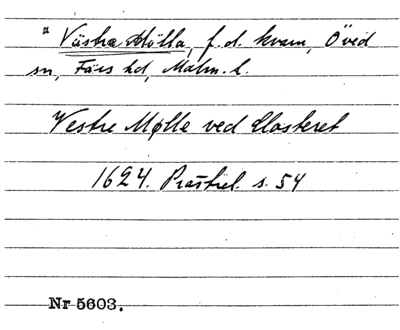 ¤ Västra Mölla, f.d. kvarn, Öved
sn, Färs hd, Malm. l.
Vestre Mølle ved Closteret
1624. Prästrel. s. 54
Nr 5603.